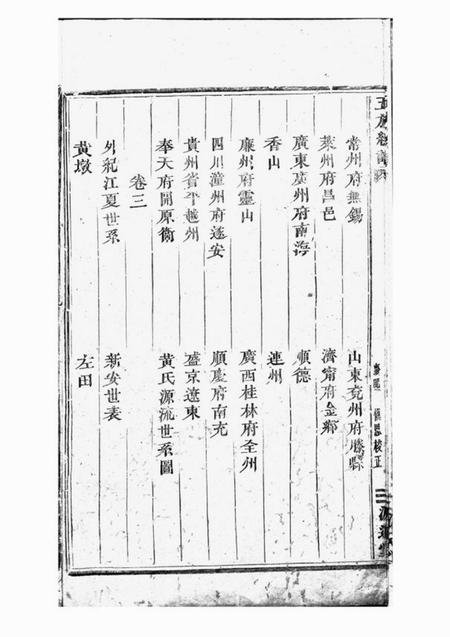 常州府無錫　山東兖州府滕縣
萊州府昌邑　濟甯府金鄉
廣東廣州府南海　順德
香山　連州
廉州府靈山　廣西桂林府全州
四川潼州府遂安　順慶府南充
貴州省平越州　盛京遼東
奉天府開原衛　黃氏源流世系圖
卷三
外紀江夏世系　新安世表
黃墩　左田